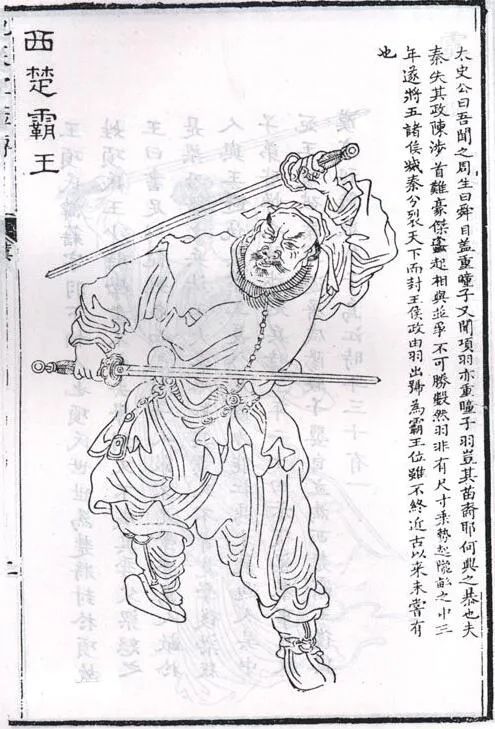 太史公曰吾聞之周生曰舜目蓋重瞳子又聞項羽亦重瞳子羽豈其苗裔耶何興之暴也夫
秦失其政陳涉首難豪傑蠭起相與並爭不可勝數然羽非有尺寸乘勢起隴畝之中三
年遂將五諸侯滅秦分裂天下而封王侯政由羽出號為霸王位雖不終近古以來未嘗有
也
西楚霸王
二